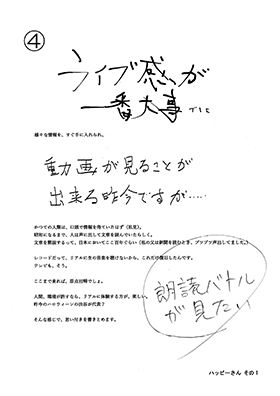 ④
ライブ感が
一番大事でして
様々な情報を、すぐ手に入れられ、
動画が見ることが
出来る昨今ですが.....
かつての人類は、口頭で情報を得ていたはず（私見）。
昭和になるまで、人は声に出して文章を読んでいたらしく。
文章を黙読するって、日本においてここ百年ぐらい（私の父は新聞を読むとき、ブツブツ声出してました。）
レコードだって、リアルに生の音楽を聴けないから、これだけ復旧したんです。
テレビも、そう。
ここまで来れば、原点回帰でしょ。
人間、環境が許すなら、リアルに体験する方が、楽しい。
昨今のハロウィーンの渋谷が代表？
そんな感じで、思い付きを書きとめます。
朗読バトル
が見たい
ハッピーさん その1